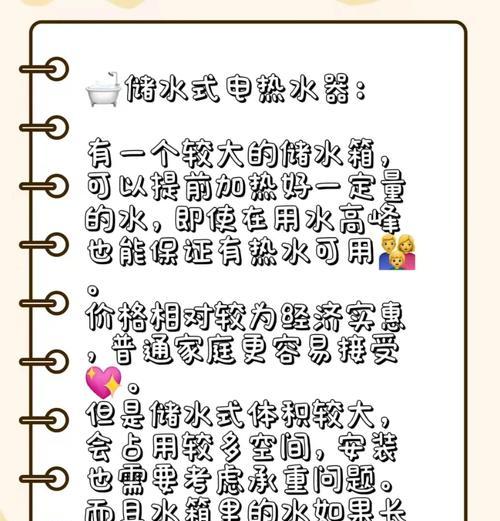 🛁储水式电热水器：
有一个较大的储水箱，
可以提前加热好一定量
的水，即使在用水高峰
也能保证有热水可用👨‍👩‍👦
。
价格相对较为经济实惠
，普通家庭更容易接受
💖。
但是储水式体积较大，
会占用较多空间，安装
也需要考虑承重问题。
而且水箱里的水如果长